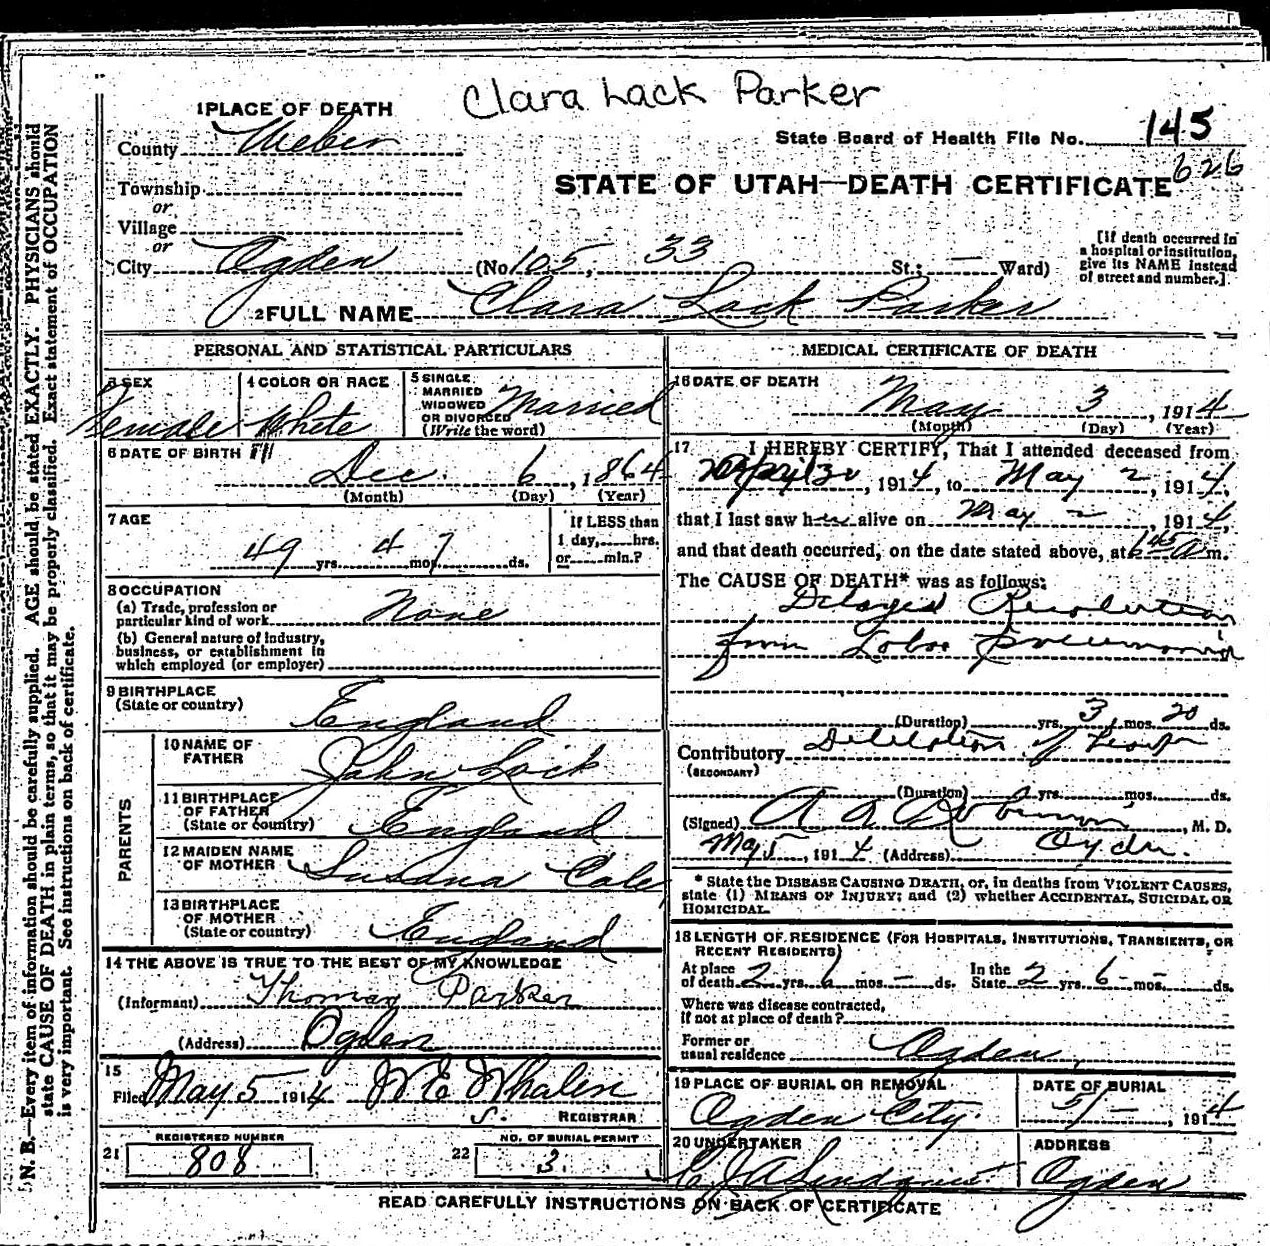 Clara Lack Parker
1 PLACE OF DEATH
State Board of Health File No. 145
626
County Weber
STATE OF UTAH—DEATH CERTIFICATE
Township
or
Village
or
City Ogden (No 105, 33 St.; — Ward)
[If death occurred in
a hospital or institution,
give its NAME instead
of street and number.]
2 FULL NAME Clara Lack Parker
PERSONAL AND STATISTICAL PARTICULARS
3 SEX
Female
4 COLOR OR RACE
White
5 SINGLE
MARRIED
WIDOWED
OR DIVORCED
(Write the word)
Married
6 DATE OF BIRTH
Dec. 6, 1864
(Month) (Day) (Year)
7 AGE
49 yrs. 4 mos. 7 ds.
If LESS than
1 day, hrs.
or min.?
8 OCCUPATION
(a) Trade, profession or
particular kind of work None
(b) General nature of industry,
business, or establishment in
which employed (or employer)
9 BIRTHPLACE
(State or country) England
PARENTS
10 NAME OF
FATHER John Lack
11 BIRTHPLACE
OF FATHER
(State or country) England
12 MAIDEN NAME
OF MOTHER Susana Cole
13 BIRTHPLACE
OF MOTHER
(State or country) England
14 THE ABOVE IS TRUE TO THE BEST OF MY KNOWLEDGE
(Informant) Thomas Parker
(Address) Ogden
15
Filed May 5 1914 W E Whalen
REGISTRAR
21 REGISTERED NUMBER
808
22 NO. OF BURIAL PERMIT
3
MEDICAL CERTIFICATE OF DEATH
16 DATE OF DEATH
May 3, 1914
(Month) (Day) (Year)
17 I HEREBY CERTIFY, That I attended deceased from
April 30, 1914, to May 2, 1914,
that I last saw her alive on May 2, 1914,
and that death occurred, on the date stated above, at 6 45 a m.
The CAUSE OF DEATH* was as follows:
Delayed Resolution
from Lobar pneumonia
(Duration) yrs. 3 mos. 20 ds.
Contributory Dilitation of heart
(SECONDARY)
(Duration) yrs. mos. ds.
(Signed) A A Robinson, M. D.
May 5, 1914 (Address) Ogden.
* State the DISEASE CAUSING DEATH, or, in deaths from VIOLENT CAUSES,
state (1) MEANS OF INJURY; and (2) whether ACCIDENTAL, SUICIDAL OR
HOMICIDAL.
18 LENGTH OF RESIDENCE (FOR HOSPITALS, INSTITUTIONS, TRANSIENTS, OR
RECENT RESIDENTS)
At place
of death 2 yrs. 6 mos. — ds. In the
State 2 yrs. 6 mos. — ds.
Where was disease contracted,
if not at place of death?
Former or
usual residence Ogden
19 PLACE OF BURIAL OR REMOVAL
Ogden City.
DATE OF BURIAL
5/ — 1914
20 UNDERTAKER
Lindquist
ADDRESS
Ogden
READ CAREFULLY INSTRUCTIONS ON BACK OF CERTIFICATE
N. B.—Every item of information should be carefully supplied. AGE should be stated EXACTLY. PHYSICIANS should
state CAUSE OF DEATH in plain terms, so that it may be properly classified. Exact statement of OCCUPATION
is very important. See instructions on back of certificate.